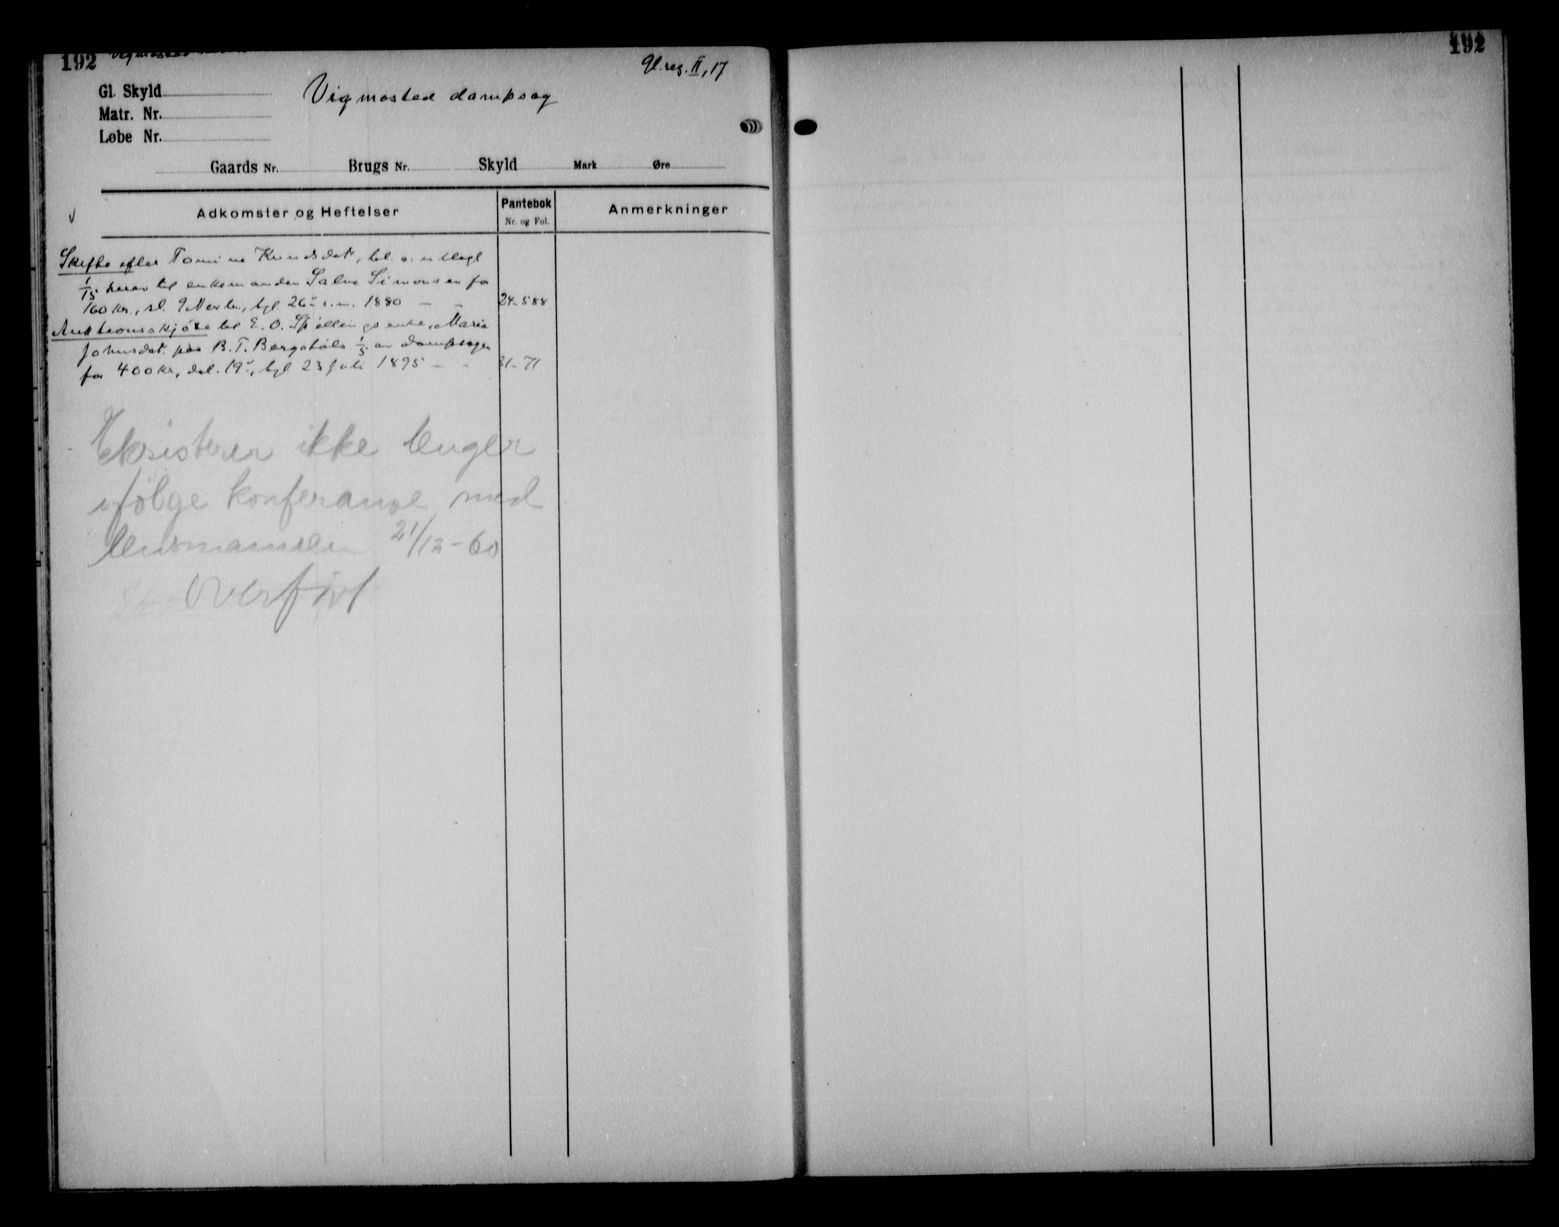 192
192
Gl. reg. II, 17
Gl. Skyld
Vigmosted dampsag
Matr. Nr.
Løbe Nr.
Gaards Nr. Brugs Nr. Skyld Mark Øre
Adkomster og Heftelser
Pantebok
Nr. og Fol.
Anmerkninger
Skifte efter Tomine Knudsdat, bl. a. utlagt
1/15 herav til enkemanden Salve Simonsen for
160 kr., sl. 9 Novbr., tgl 26 s.m. 1880 - - 24-588
Auktionsskjøte til E. O. Spillings enke, Maria
Johnsdat. paa B. T. Bergstøls 1/5 av dampsagen
for 400 kr, dat. 19, tgl 23 juli 1895 - - 31-71
Eksisterer ikke lenger
ifølge konferanse med
lensmannen 21/12-60
Overført